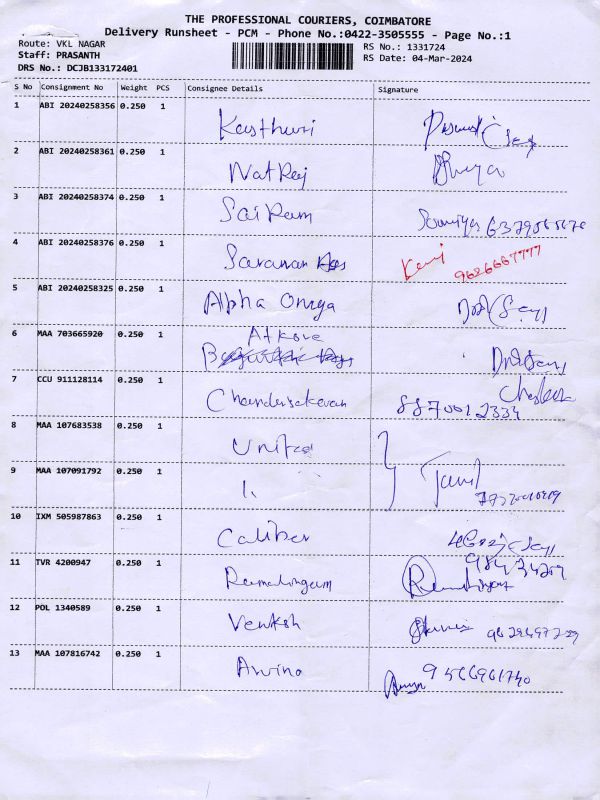 THE PROFESSIONAL COURIERS, COIMBATORE
Delivery Runsheet - PCM - Phone No.:0422-3505555 - Page No.:1
Route: VKL NAGAR RS No.: 1331724
Staff: PRASANTH RS Date: 04-Mar-2024
DRS No.: DCJB133172401
S No Consignment No Weight PCS Consignee Details Signature
1 ABI 20240258356 0.250 1 Kasthuri
2 ABI 20240258361 0.250 1 NatRaj Dhivya
3 ABI 20240258374 0.250 1 SaiRam
4 ABI 20240258376 0.250 1 Saranan 9626667777
5 ABI 20240258325 0.250 1 Alpha Omega
6 MAA 703665920 0.250 1 Atkore
7 CCU 911128114 0.250 1 Chandersekaran 8870012334
8 MAA 107683538 0.250 1 United
9 MAA 107091792 0.250 1 Tamil
10 IXM 505987863 0.250 1 Caliber
11 TVR 4200947 0.250 1 Ramalingam
12 POL 1340589 0.250 1 Venksh
13 MAA 107816742 0.250 1 Arvino 9566961740